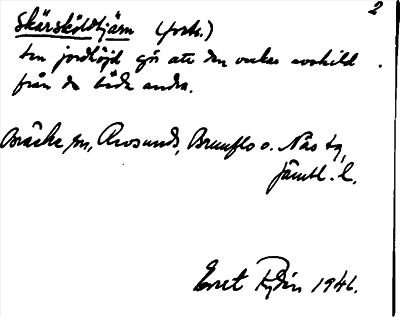 2
Skärsköldtjärn (forts.)
En jordhöjd gör att den verkar avskild
från de båda andra.
Bräcke sn, Revsunds, Brunflo o. Näs tg,
Jämtl. l.
Evert Rydén 1946.